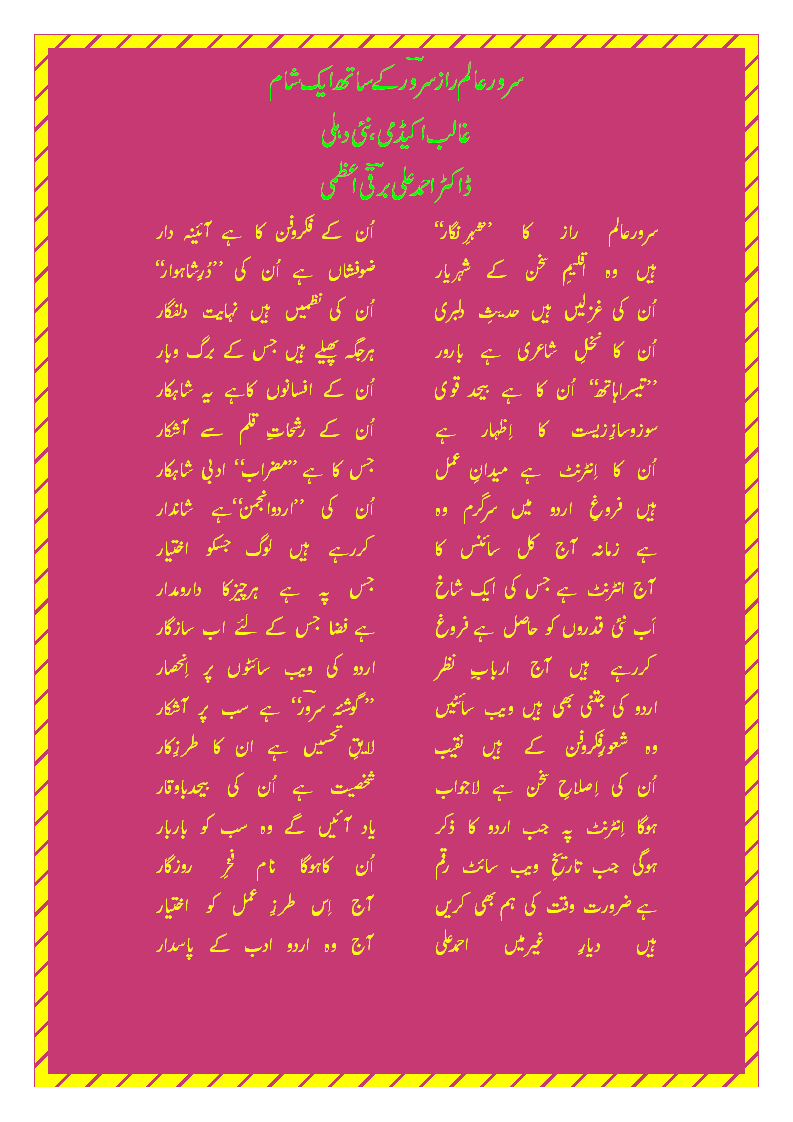 سرور عالم راز سرورؔ کے ساتھ ایک شام
غالب اکیڈمی، نئی دہلی
ڈاکٹر احمد علی برقیؔ اعظمی
سرورعالم راز کا ’’شہرِ نگار‘‘ اُن کے فکروفن کا ہے آئینہ دار
ہیں وہ اقلیمِ سخن کے شہریار ضوفشاں ہے اُن کی ’’دُرِشاہوار‘‘
اُن کی غزلیں ہیں حدیثِ دلبری اُن کی نظمیں ہیں نہایت دلفگار
اُن کا نخلِ شاعری ہے بارور ہرجگہ پھیلے ہیں جس کے برگ وبار
’’تیسراہاتھ‘‘ اُن کا ہے بیحد قوی اُن کے افسانوں کاہے یہ شاہکار
سوزوسازِزیست کا اِظہار ہے اُن کے رشحاتِ قلم سے آشکار
اُن کا اِنٹرنٹ ہے میدانِ عمل جس کا ہے ’’مضراب‘‘ ادبی شاہکار
ہیں فروغِ اردو میں سرگرم وہ اُن کی ’’اردوانجمن‘‘ہے شاندار
ہے زمانہ آج کل سائنس کا کررہے ہیں لوگ جسکو اختیار
آج انٹرنٹ ہے جس کی ایک شاخ جس پہ ہے ہرچیزکا دارومدار
اَب نئی قدروں کو حاصل ہے فروغ ہے فضا جس کے لئے اب سازگار
کررہے ہیں آج اربابِ نظر اردو کی ویب سائٹوں پر اِنحصار
اردو کی جتنی بھی ہیں ویب سائٹیں ’’گوشئہ سرورؔ‘‘ ہے سب پر آشکار
وہ شعورِفکروفن کے ہیں نقیب لایقِ تحسیں ہے ان کا طرزِکار
اُن کی اِصلاحِ سخن ہے لاجواب شخصیت ہے اُن کی بیحدباوقار
ہوگا اِنٹرنٹ پہ جب اردو کا ذکر یاد آئیں گے وہ سب کو باربار
ہوگی جب تاریخِ ویب سائٹ رقم اُن کاہوگا نام فخرِ روزگار
ہے ضرورت وقت کی ہم بھی کریں آج اِس طرزِ عمل کو اختیار
ہیں دیارِ غیرمیں احمدعلی آج وہ اردو ادب کے پاسدار